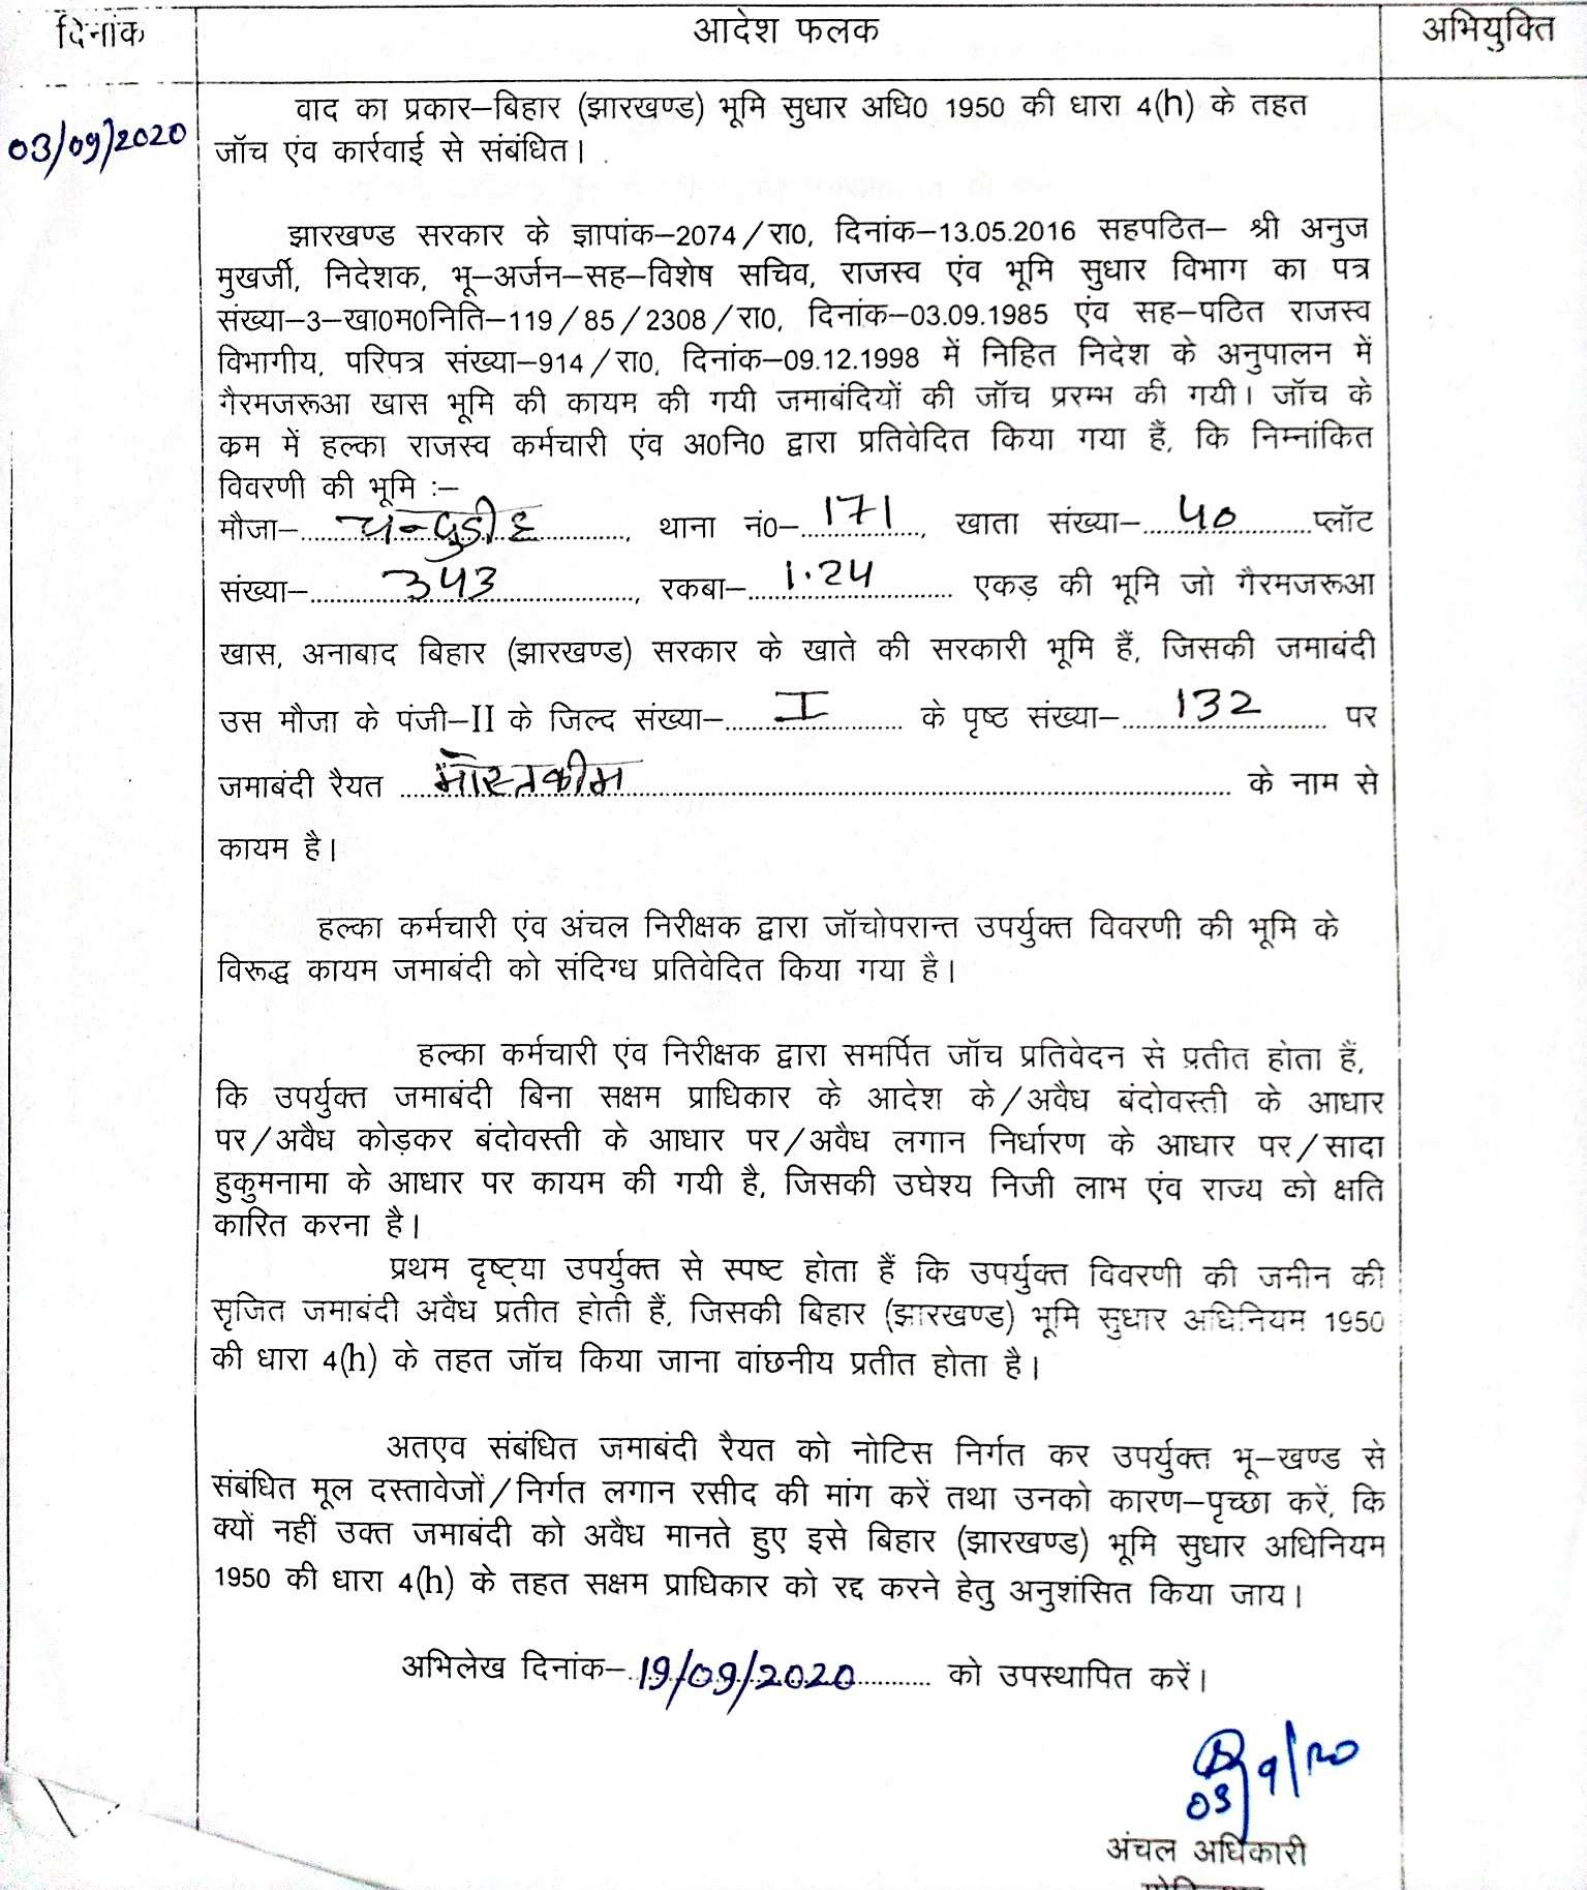 दिनांक आदेश फलक अभियुक्ति
03/09/2020
वाद का प्रकार–बिहार (झारखण्ड) भूमि सुधार अधि0 1950 की धारा 4(h) के तहत
जॉच एंव कार्रवाई से संबंधित।
झारखण्ड सरकार के ज्ञापांक–2074/रा0, दिनांक–13.05.2016 सहपठित– श्री अनुज
मुखर्जी, निदेशक, भू–अर्जन–सह–विशेष सचिव, राजस्व एंव भूमि सुधार विभाग का पत्र
संख्या–3–खा0म0निति–119/85/2308/रा0, दिनांक–03.09.1985 एंव सह–पठित राजस्व
विभागीय, परिपत्र संख्या–914/रा0, दिनांक–09.12.1998 में निहित निदेश के अनुपालन में
गैरमजरूआ खास भूमि की कायम की गयी जमाबंदियों की जॉच प्ररम्भ की गयी। जॉच के
कम में हल्का राजस्व कर्मचारी एंव अ0नि0 द्वारा प्रतिवेदित किया गया हैं, कि निम्नांकित
विवरणी की भूमि :–
मौजा–...................., थाना नं0–171, खाता संख्या–40 प्लॉट
संख्या–343, रकबा–1.24 एकड़ की भूमि जो गैरमजरूआ
खास, अनाबाद बिहार (झारखण्ड) सरकार के खाते की सरकारी भूमि हैं, जिसकी जमाबंदी
उस मौजा के पंजी–II के जिल्द संख्या–I के पृष्ठ संख्या–132 पर
जमाबंदी रैयत मोस्तकीम के नाम से
कायम है।
हल्का कर्मचारी एंव अंचल निरीक्षक द्वारा जॉचोपरान्त उपर्युक्त विवरणी की भूमि के
विरूद्ध कायम जमाबंदी को संदिग्ध प्रतिवेदित किया गया है।
हल्का कर्मचारी एंव निरीक्षक द्वारा समर्पित जॉच प्रतिवेदन से प्रतीत होता हैं,
कि उपर्युक्त जमाबंदी बिना सक्षम प्राधिकार के आदेश के/अवैध बंदोवस्ती के आधार
पर/अवैध कोड़कर बंदोवस्ती के आधार पर/अवैध लगान निर्धारण के आधार पर/सादा
हुकुमनामा के आधार पर कायम की गयी है, जिसकी उघेश्य निजी लाभ एंव राज्य को क्षति
कारित करना है।
प्रथम दृष्ट्या उपर्युक्त से स्पष्ट होता हैं कि उपर्युक्त विवरणी की जमीन की
सृजित जमाबंदी अवैध प्रतीत होती हैं, जिसकी बिहार (झारखण्ड) भूमि सुधार अधिनियम 1950
की धारा 4(h) के तहत जॉच किया जाना वांछनीय प्रतीत होता है।
अतएव संबंधित जमाबंदी रैयत को नोटिस निर्गत कर उपर्युक्त भू–खण्ड से
संबंधित मूल दस्तावेजों/निर्गत लगान रसीद की मांग करें तथा उनको कारण–पृच्छा करें, कि
क्यों नहीं उक्त जमाबंदी को अवैध मानते हुए इसे बिहार (झारखण्ड) भूमि सुधार अधिनियम
1950 की धारा 4(h) के तहत सक्षम प्राधिकार को रद्द करने हेतु अनुशंसित किया जाय।
अभिलेख दिनांक–19/09/2020 को उपस्थापित करें।
03/9/20
अंचल अधिकारी